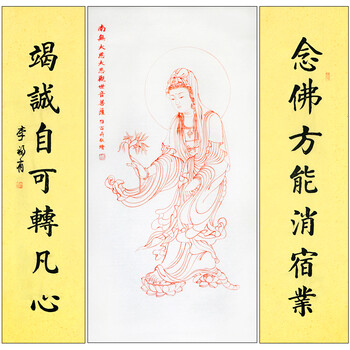 念佛方能消宿業
南無大慈大悲觀世音菩薩
竭誠自可轉凡心